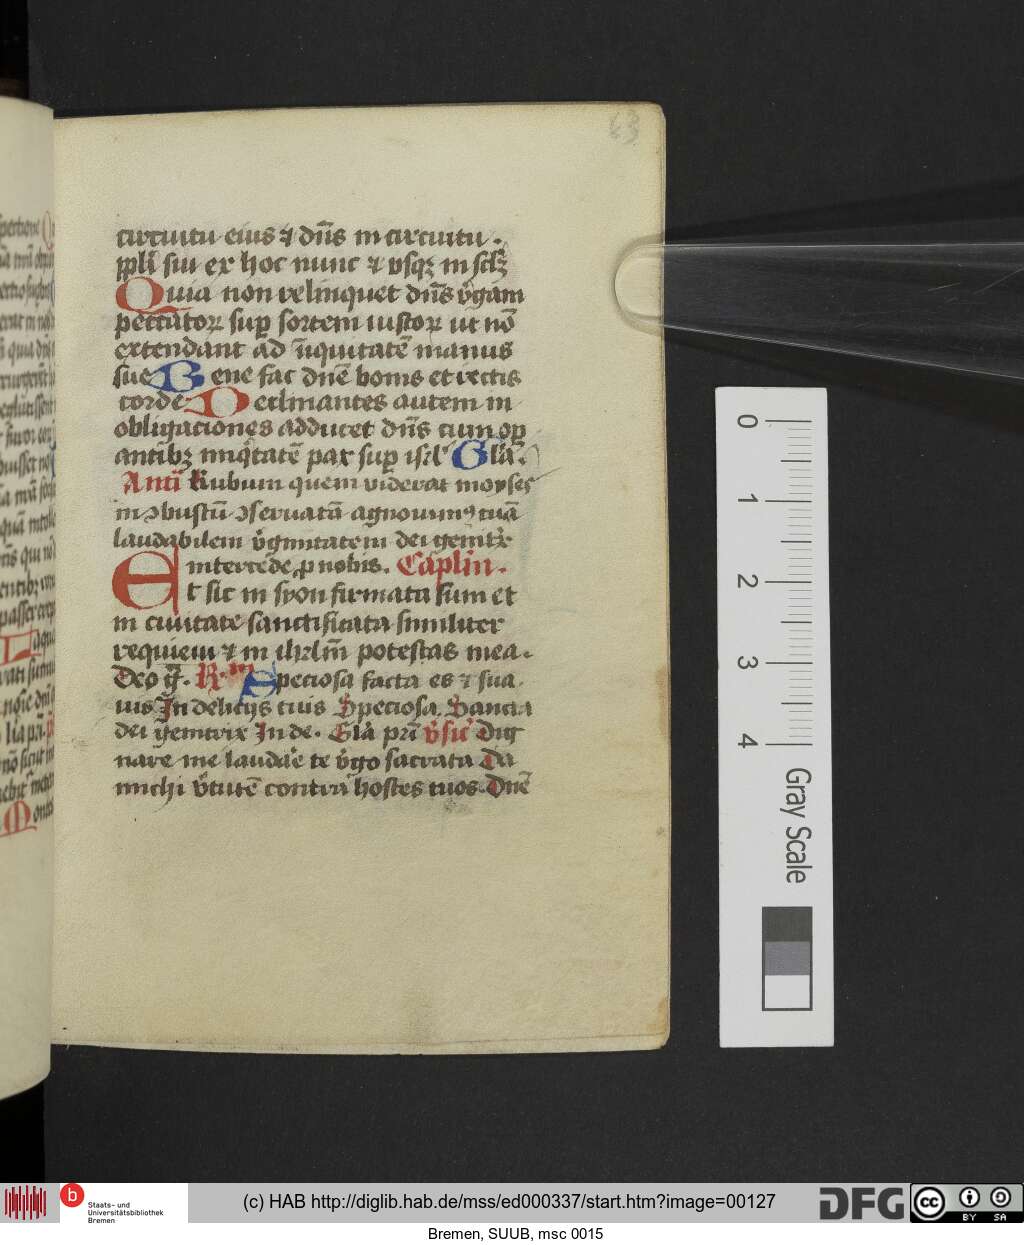 63
circuitu eius ⁊ dn̄s in circuitu .
pp̄li sui ex hoc nunc ⁊ vsqꝫ in sclꝫ
Quia non relinquet dn̄s v̓gam
peccatoꝝ suꝑ sortem iustoꝝ ut nō
extendant ad īiquitatē manus
sue Bene fac dn̄e bonis et rectis
corde Declinantes autem in
obligationes adducet dn̄s cum oꝑ
antibꝫ iniq̓tatē pax suꝑ isrl̓ Glīa.
Antī Rubum quem viderat moyses
in ↄbustū ↄseruatā agnouimꝰ tuā
laudabilem v̓ginitatem dei genitͥx
intercede ꝓ nobis . Capl̄m .
Et sic in syon firmata sum et
in ciuitate sanctificata similiter
requieui ⁊ in ihrl̄m potestas mea .
Deo gͬ . R̄m Speciosa facta es ⁊ sua
uis In delicijs tuis Speciosa . Sancta
dei genitrix In de . Glā pr̄i v̓sic̄ Dig
nare me laudāe te v̓go sacrata Da
michi v̓tutē contra hostes tuos . Dn̄e
0
1
2
3
4
Gray Scale
b Staats- und
Universitätsbibliothek
Bremen
(c) HAB http://diglib.hab.de/mss/ed000337/start.htm?image=00127
DFG
cc BY SA
Bremen, SUUB, msc 0015